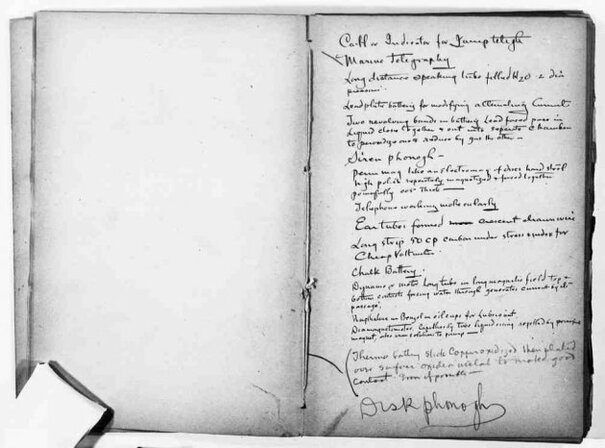 Call or Indicator for Jump telegh
Marine Telegraphy
Long distance speaking tube filled H2O - 2 dia
Lead plate battery for modifying alternating Current
Two revolving bands in battery Lead faced pass in
Liquid close together & out into separate Chamber
to peroxidize one & reduce by gas the other -
Siren phonogh -
perm mag like an Electromag of discs hard steel
high polish separately magnetized & forced together
powerfully
Telephone working molecularly
Ear tubes formed crescent drawn wire
Long strip 50 CP carbon under stress & index for
Cheap Voltmeter
Chalk Battery.
Dynamo or motor long tube in long magnetic field top &
bottom contacts forcing water through generates current by its
passage
Naphthalene in Benzol in oil cups for Lubricant
magnet, also iron solution to pump -
Thermo battery slick Copper oxidized then plated
over surface oxidized metal to make good
contact
Disk phonogh